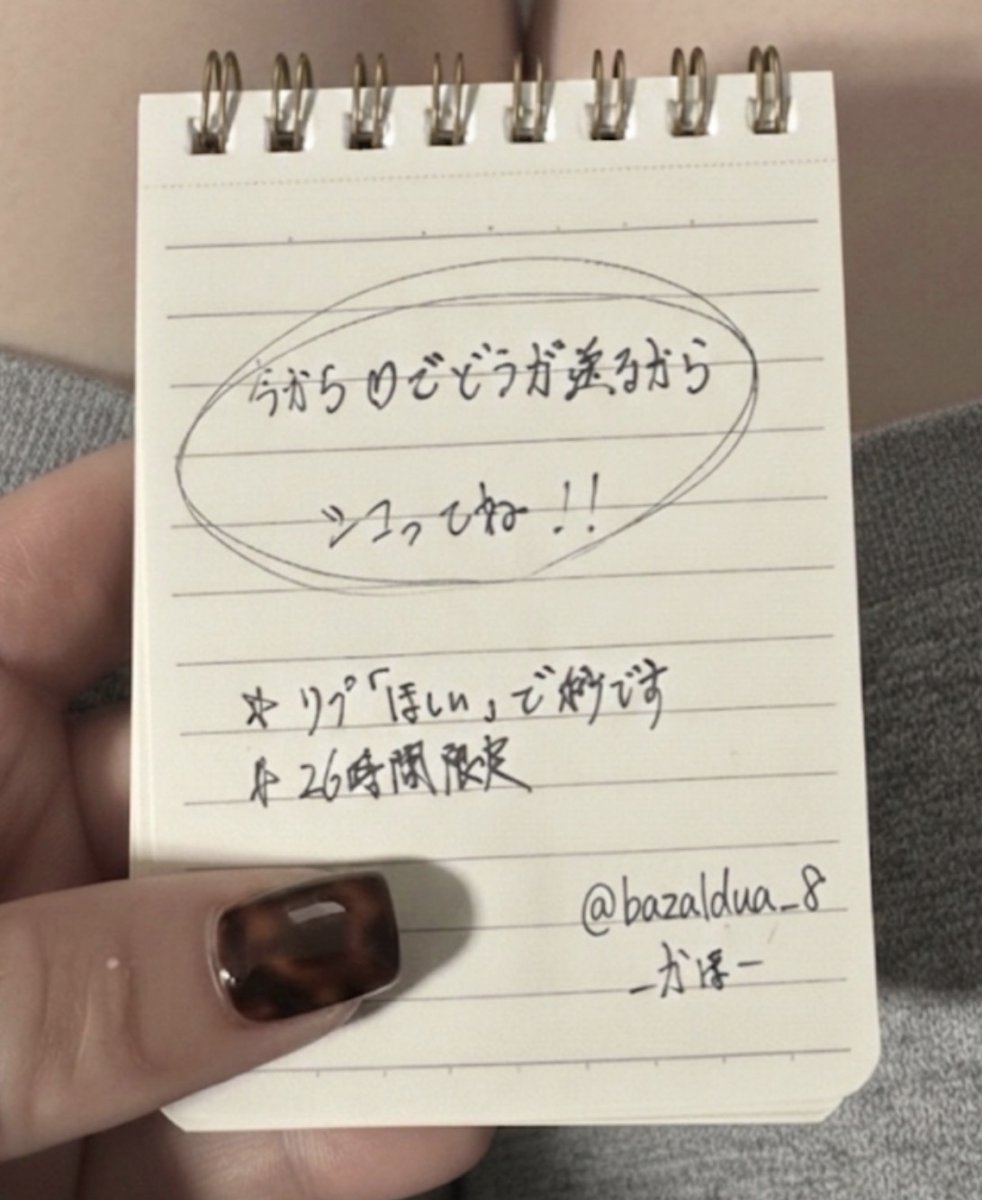 今から♡でどうが送るから
シコってね!!
☆ リプ「ほしい」で秒です
☆ 26時間限定
@bazaldua_8
-かほ-